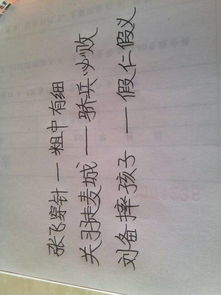 张飞穿针 — 粗中有细
关羽走麦城 — 骄兵必败
刘备摔孩子 — 假仁假义